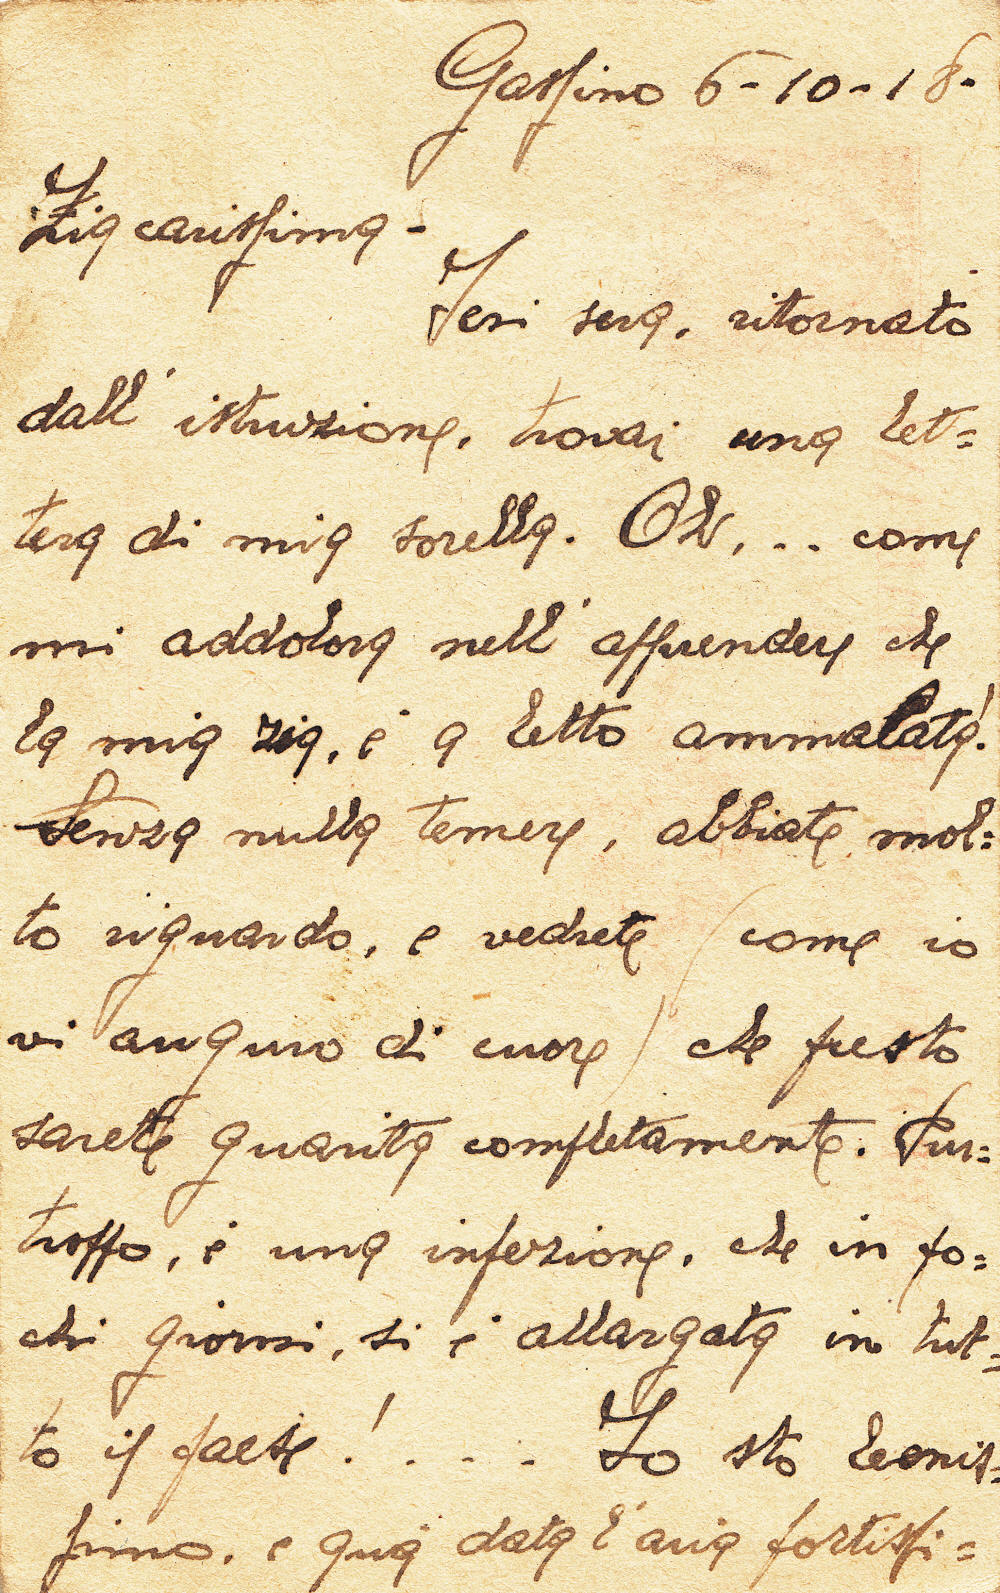 Gassino 6-10-18-
Zia carissima -
Ieri sera, ritornato
dall' istruzione, trovai una let=
tera di mia sorella. Oh, .. come
mi addolora nell' apprendere che
la mia zia, è a letto ammalata!
Senza nulla temere, abbiate mol=
to riguardo, e vedrete (come io
vi auguro di cuore) che presto
sarete guarita completamente. Pur=
troppo, è una infezione, che in po=
chi giorni, si è allargata in tut=
to il paese! . . . . Io sto benis=
simo, e quà data l'aria fortissi=